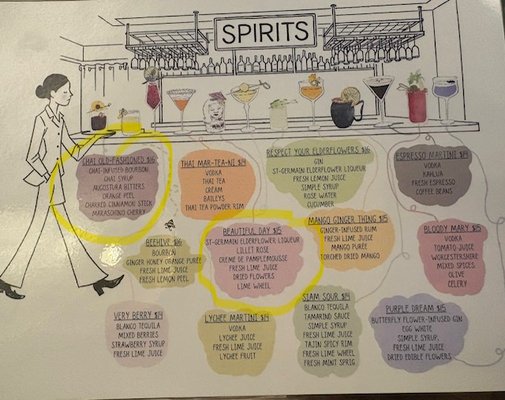 SPIRITS
CHAI OLD-FASHIONED $16
CHAI-INFUSED BOURBON
CHAI SYRUP
ANGOSTURA BITTERS
ORANGE PEEL
CHARRED CINNAMON STICK
MARASCHINO CHERRY
THAI MAR-TEA-NI $14
VODKA
THAI TEA
CREAM
BAILEYS
THAI TEA POWDER RIM
RESPECT YOUR ELDERFLOWERS $16
GIN
ST-GERMAIN ELDERFLOWER LIQUEUR
FRESH LEMON JUICE
SIMPLE SYRUP
ROSE WATER
CUCUMBER
ESPRESSO MARTINI $14
VODKA
KAHLUA
FRESH ESPRESSO
COFFEE BEANS
BEEHIVE $16
BOURBON
GINGER HONEY ORANGE PURÉE
FRESH LEMON JUICE
FRESH LEMON PEEL
BEAUTIFUL DAY $15
ST-GERMAIN ELDERFLOWER LIQUEUR
LILLET ROSE
CREME DE PAMPLEMOUSSE
FRESH LIME JUICE
DRIED FLOWERS
LIME WHEEL
MANGO GINGER THING $15
GINGER-INFUSED RUM
FRESH LIME JUICE
MANGO PURÉE
TORCHED DRIED MANGO
BLOODY MARY $15
VODKA
TOMATO JUICE
WORCESTERSHIRE
MIXED SPICES
OLIVE
CELERY
VERY BERRY $14
BLANCO TEQUILA
MIXED BERRIES
STRAWBERRY SYRUP
FRESH LIME JUICE
LYCHEE MARTINI $14
VODKA
LYCHEE JUICE
FRESH LIME JUICE
LYCHEE FRUIT
SIAM SOUR $14
BLANCO TEQUILA
TAMARIND SAUCE
SIMPLE SYRUP
FRESH LIME JUICE
TAJIN SPICY RIM
FRESH LIME WHEEL
FRESH MINT SPRIG
PURPLE DREAM $15
BUTTERFLY FLOWER-INFUSED GIN
EGG WHITE
SIMPLE SYRUP
FRESH LIME JUICE
DRIED EDIBLE FLOWERS